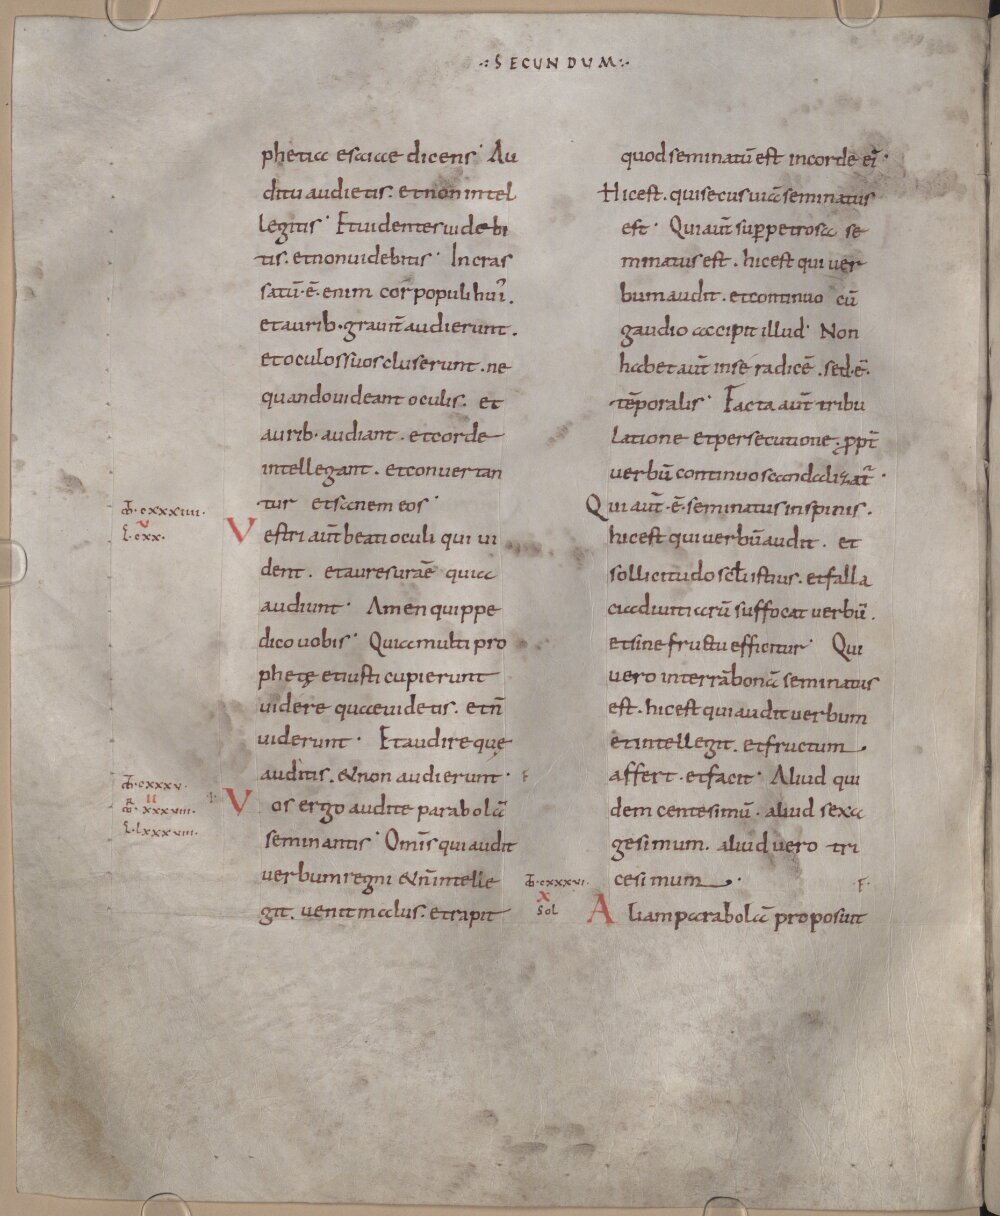 ·:SECUNDUM:·
phetia esaiae dicens· Au
ditu audietis. et non intel
legitis· Et videntes videbi
tis. et non videbitis· Incras
satū·ē·enim cor populi huiꝰ.
et aurib·graviť audierunt.
et oculos suos cluserunt. ne
quando videant oculis. et
aurib·audiant. et corde
intellegant. et convertan
tur et sanem eos·
Vestri aūt beati oculi qui vi
dent. et aures uraē quia
audiunt· Amen quippe
dico vobis· Quia multi pro
phetę et iusti cupierunt
videre quae videtis. et n̄
viderunt· Et audire quę
auditis. & non audierunt·
Vos ergo audite parabolā
seminantis· Omīs qui audit
verbum regni & n̄ intelle
git. venit malus. et rapit
ꝏ·cxxxiiii.
v
L·cxx.
ꝏ·cxxxv.
ii
ꝏ·xxxviii.
L·lxxxviii.
quod seminatū est in corde eiꝰ·
Hic est. qui secus viā seminatus
est· Qui aūt sup̄ petrosa se
minatus est. hic est qui ver
bum audit. et continuo cū
gaudio accipit illud· Non
habet aūt in se radicē. sed·ē·
tēporalis· Facta aūt tribu
latione et persecutione. ꝓpt̄
verbū continuo scandalizat᷑·
Qui aūt·ē·seminatus in spinis.
hic est qui verbū audit. et
sollicitudo sc̄li istius. et falla
cia divitiarū suffocat verbū.
et sine fructu efficitur· Qui
vero in terrā bonā seminatus
est. hic est qui audit verbum
et intellegit. et fructum
affert. et facit· Aliud qui
dem centesimū. aliud sexa
gesimum. aliud vero tri
cesimum·
F·
ꝏ·cxxxvi.
x
Sol
Aliam parabolā proposuit